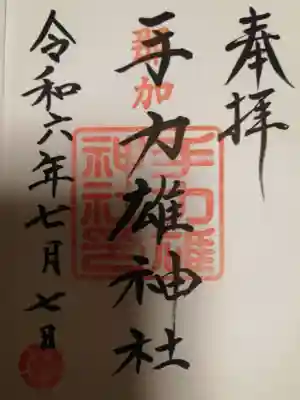 奉拝
那加
手力雄神社
手力雄
神社
令和六年七月七日